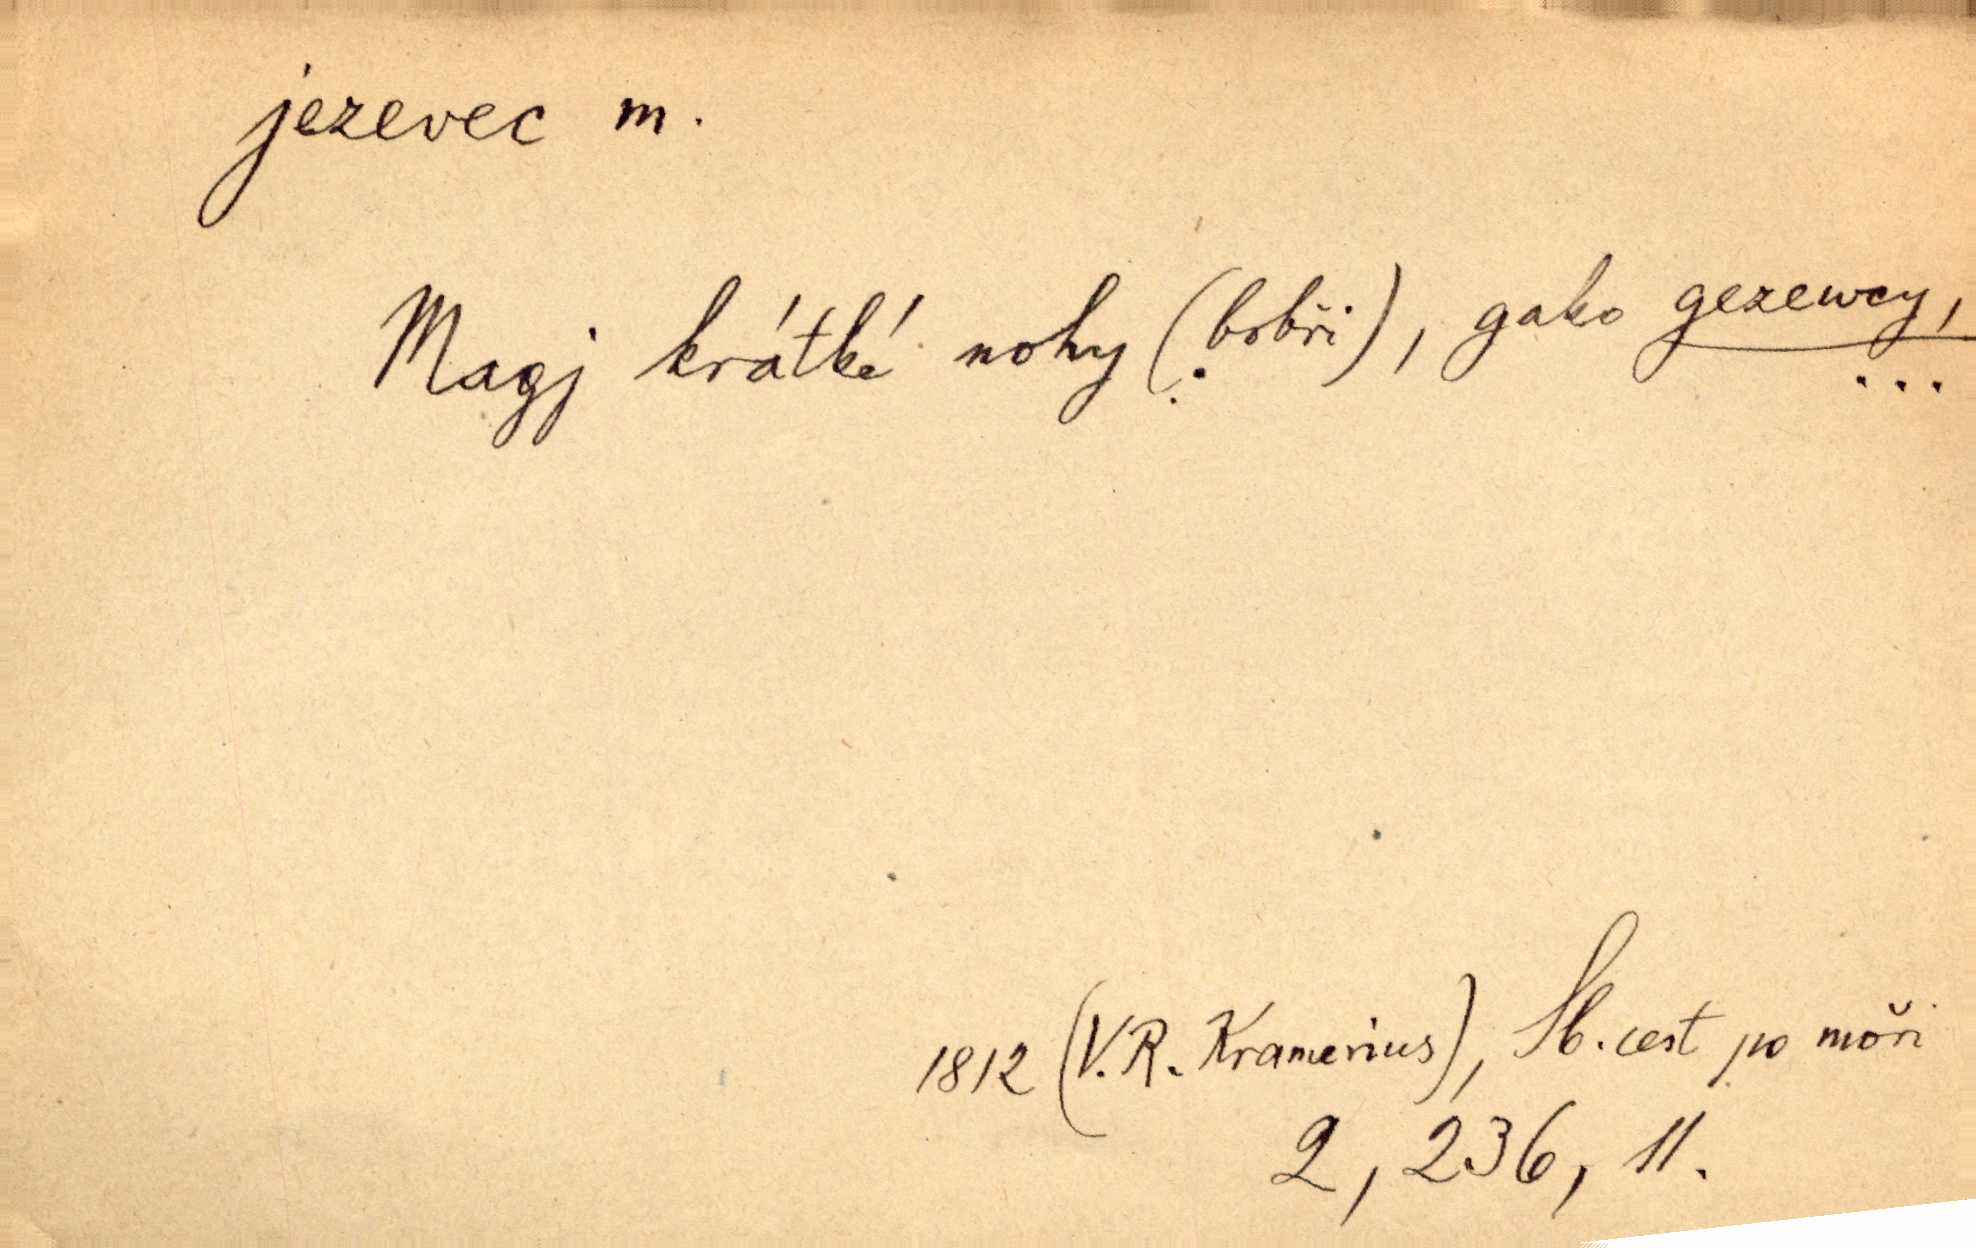 jezevec m.
Magj krátké nohy (bobři), gako gezewcy,
...
1812 (V.R. Kramerius), Sb. cest po moři
2, 236, 11.